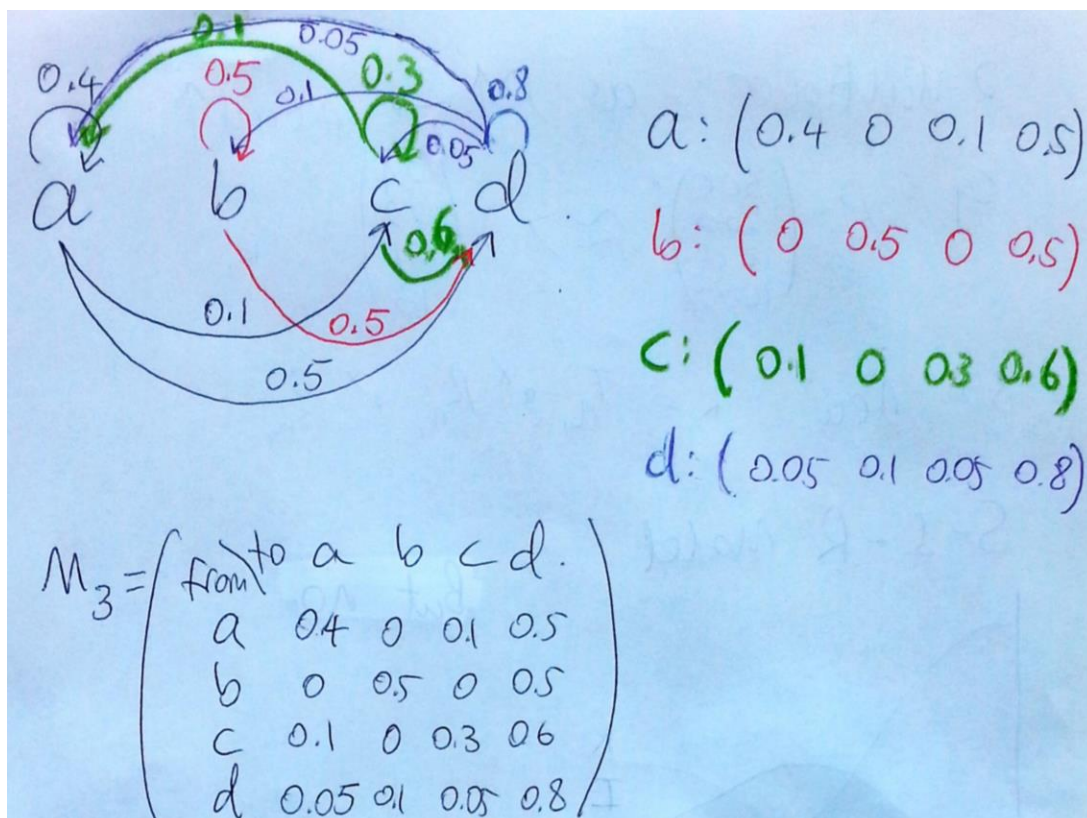 0.1 0.05
0.4 0.5 0.1 0.3 0.8
0.05
a b c d.
0.6
0.1 0.5
0.5
a: (0.4 0 0.1 0.5)
b: (0 0.5 0 0.5)
c: (0.1 0 0.3 0.6)
d: (0.05 0.1 0.05 0.8)
M₃ = ( from\to a b c d.
a 0.4 0 0.1 0.5
b 0 0.5 0 0.5
c 0.1 0 0.3 0.6
d 0.05 0.1 0.05 0.8 )